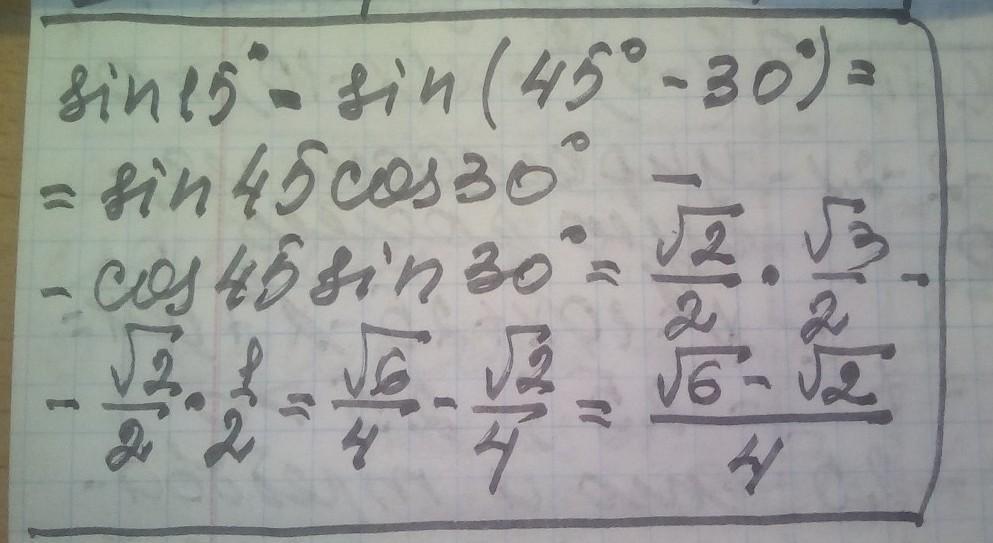 sin15° = sin(45° - 30°) =
= sin45cos30° -
- cos45sin30° = √2/2 · √3/2 -
- √2/2 · 1/2 = √6/4 - √2/4 = (√6 - √2)/4